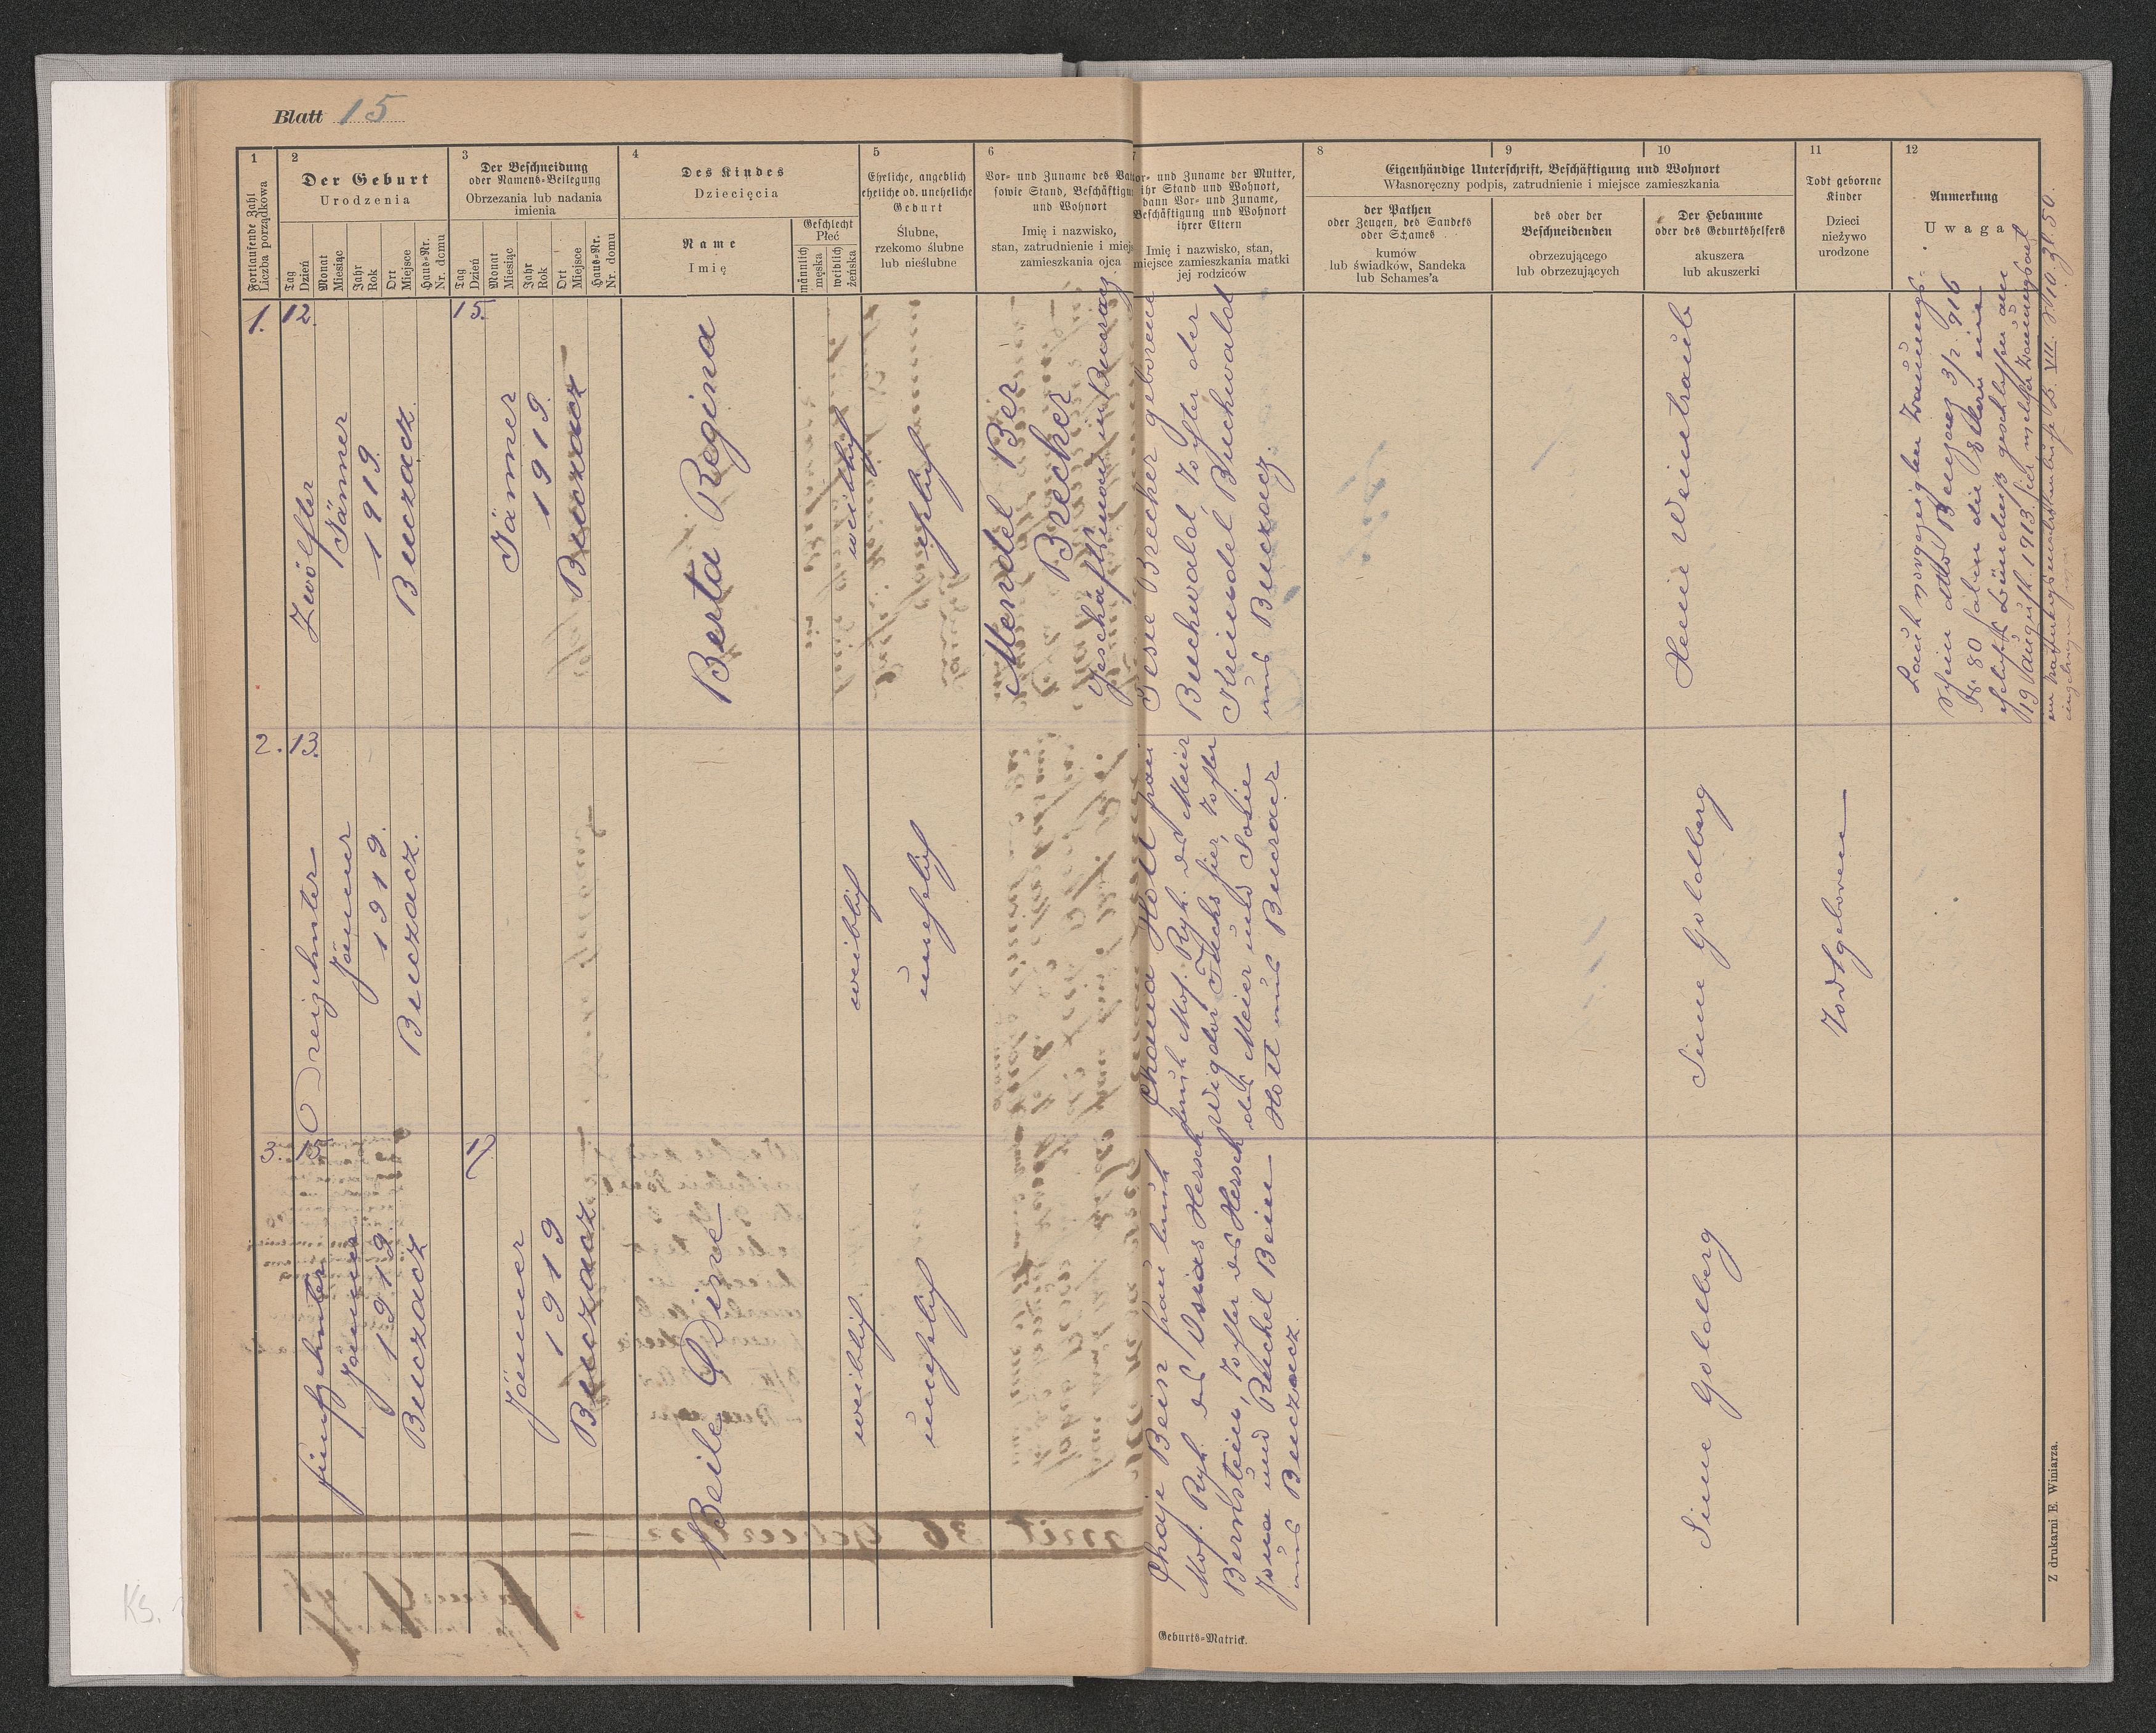 Blatt 15
1
Fortlaufende Zahl
Liczba porządkowa
2
Der Geburt
Urodzenia
Tag
Dzień
Monat
Miesiąc
Jahr
Rok
Ort
Miejsce
Haus-Nr.
Nr. domu
3
Der Beschneidung
oder Namens-Beilegung
Obrzezania lub nadania
imienia
Tag
Dzień
Monat
Miesiąc
Jahr
Rok
Ort
Miejsce
Haus-Nr.
Nr. domu
4
Des Kindes
Dziecięcia
Name
Imię
Geschlecht
Płeć
männlich
męska
weiblich
żeńska
5
Eheliche, angeblich
eheliche od. uneheliche
Geburt
Ślubne,
rzekomo ślubne
lub nieślubne
6
Vor- und Zuname des
sowie Stand,
und Wohnort
Imię i nazwisko,
stan, zatrudnienie i
zamieszkania ojca
7
Vor- und Zuname der Mutter,
ihr Stand und Wohnort,
dann Vor- und Zuname,
Beschäftigung und Wohnort
ihrer Eltern
Imię i nazwisko, stan,
miejsce zamieszkania matki
jej rodziców
Eigenhändige Unterschrift, Beschäftigung und Wohnort
Własnoręczny podpis, zatrudnienie i miejsce zamieszkania
8
der Pathen
oder Zeugen, des Sandeks
oder Schames
kumów
lub świadków, Sandeka
lub Schames'a
9
des oder der
Beschneidenden
obrzezującego
lub obrzezujących
10
Der Hebamme
oder des Geburtshelfers
akuszera
lub akuszerki
11
Todt geborene
Kinder
Dzieci
nieżywo
urodzone
12
Anmerkung
Uwaga
1.
12.
Zwölfter
Jänner
1919.
Buczacz.
15.
Jänner
1919.
Buczacz
Berta Regina
weiblich
ehelich
Mendel Ber
Brecher
Geschäftsmann in Buczacz.
Brecher geborene
Buchwald Tochter der
Kreindel Buchwald
aus Buczacz.
Weintraub
Laut vorgezeigten Trauungs-
schein dto Buczacz 3/2. 916
Z. 80 haben die Eltern ein
19 August 1913.
VII. No. 31. 50.
2.
13.
Dreizehnter
Jänner
1919.
Buczacz.
weiblich
unehelich
Chana Hott
laut Mos. Rzh. des Meier
Wigdor Fuchs hier, Tochter
des Meier und Sosie
Hott aus Buczacz
Sime Goldberg
Todtgeboren
3.
15.
fünfzehnter
Jänner
1919.
Buczacz
Jänner
1919
Buczacz
Beile Dine
weiblich
unehelich
Chaje Beir laut
Mos. Rzh. des Osias Hersch
Bernstein, Tochter des Hersch
Jona und Ruchel Beir
aus Buczacz.
Sime Goldberg
Geburts-Matrick.
Z drukarni E. Winiarza.
Ks.